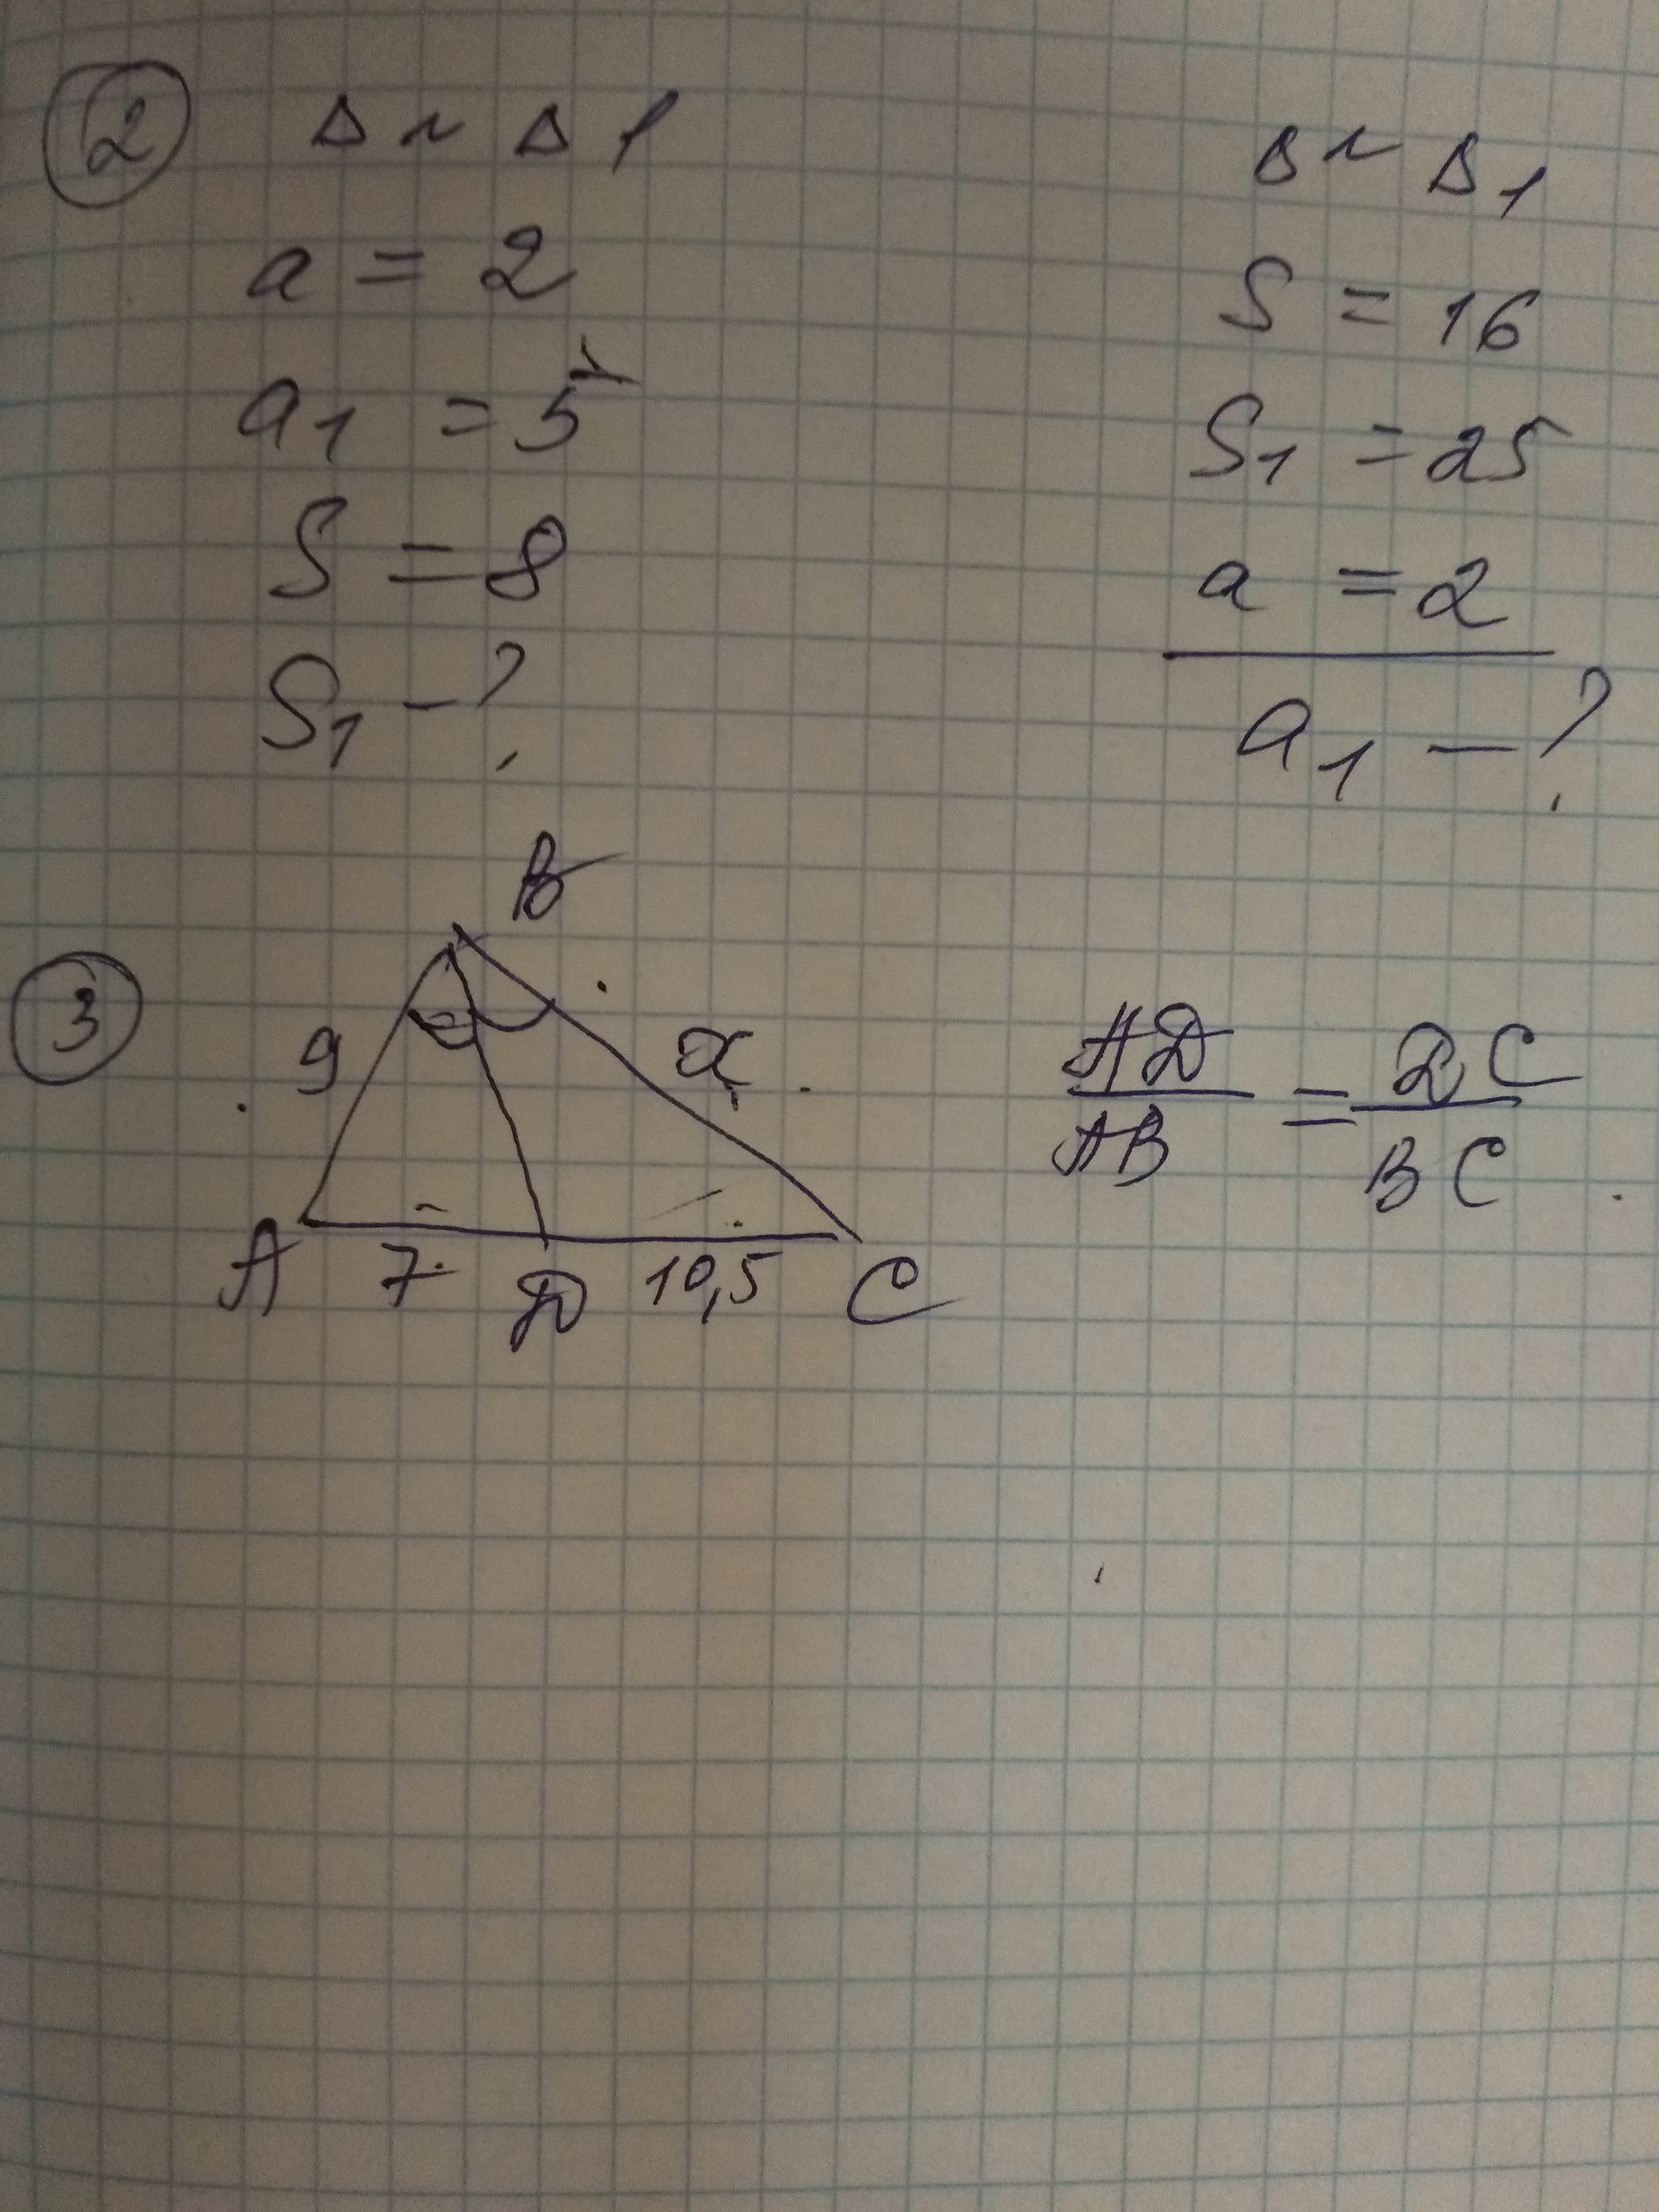 2
Δ ~ Δ 1
a = 2
a1 = 5
S = 8
S1 - ?
Δ ~ Δ1
S = 16
S1 = 25
a = 2
a1 - ?
3
B
9
x
A
7
D
10,5
C
AD/AB = DC/BC